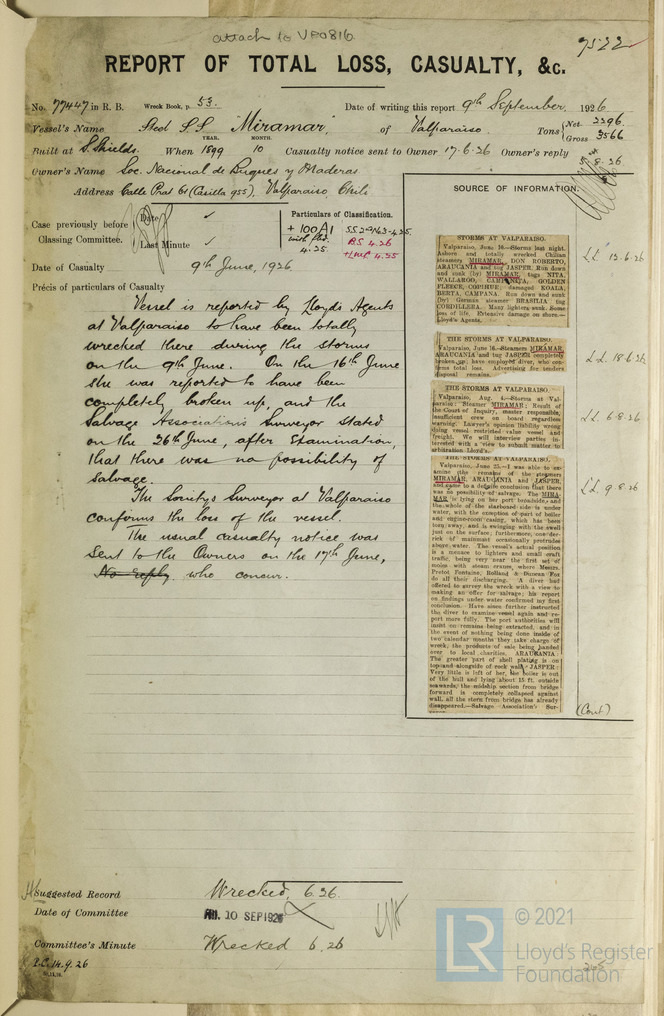 attach to VF0816
7522
REPORT OF TOTAL LOSS, CASUALTY, &c.
No. 77447 in R. B. Wreck Book, p. 53. Date of writing this report 9th September, 1926
Vessel's Name Steel S.S. "Miramar" of Valparaiso. Tons { Net 2296. Gross 3566
Built at S. Shields. When YEAR. 1899 MONTH. 10 Casualty notice sent to Owner 17.6.26 Owner's reply 8.26
Owner's Name Soc. Nacional de Buques y Maderas
Address Calle Prat 61 (Casilla 955), Valparaiso, Chili
Case previously before Classing Committee. { Date ✓ Last Minute ✓
Particulars of Classification.
+ 100A1
4.25.
BS 4.26
+LMC 4.25
Date of Casualty 9th June, 1926.
Précis of particulars of Casualty
Vessel is reported by Lloyds Agents
at Valparaiso to have been totally
wrecked there during the storms
on the 9th June. On the 16th June
she was reported to have been
completely broken up, and the
Salvage Association's Surveyor stated
on the 26th June, after Examination,
that there was no possibility of
salvage.
The Society's Surveyor at Valparaiso
confirms the loss of the vessel.
The usual casualty notice was
sent to the Owners on the 17th June,
No reply who concur.
SOURCE OF INFORMATION.
STORMS AT VALPARAISO.
Valparaiso, June 10.—Storms last night.
Ashore and totally wrecked Chilian
steamers MIRAMAR, DON ROBERTO,
ARAUCANIA and tug JASPER. Run down
and sunk (by) MIRAMAR, tugs NITA,
WALLAROO, CAMPANITA, GOLDEN
FLEECE, COPIHUE; damaged KOALA,
BERTA, CAMPANA. Run down and sunk
(by) German steamer BRASILIA tug
CORDILLERA. Many lighters sunk. Some
loss of life. Extensive damage on shore.—
Lloyd's Agents.
L.L. 12-6-26
THE STORMS AT VALPARAISO.
Valparaiso, June 16.—Steamers MIRAMAR,
ARAUCANIA and tug JASPER completely
broken up, have employed diver, who con-
firms total loss. Advertising for tenders
disposal remains.
L.L. 18-6-26
THE STORMS AT VALPARAISO.
Valparaiso, Aug. 4.—Storms at Val-
paraiso: Steamer MIRAMAR: Result of
the Court of Inquiry, master responsible,
insufficient crew on board regardless
warning. Lawyer's opinion liability wrong
doing vessel restricted value vessel and
freight. We will interview parties in-
terested with a view to submit matter to
arbitration Lloyd's.
L.L. 6-8-26
THE STORMS AT VALPARAISO.
Valparaiso, June 26.—I was able to ex-
amine the remains of the steamers
MIRAMAR, ARAUCANIA and JASPER,
and came to a definite conclusion that there
was no possibility of salvage. The MIRA-
MAR is lying on her port broadside, and
the whole of the starboard side is under
water, with the exception of part of boiler
and engine-room casing, which has been
torn away, and is swinging with the swell
just on the surface; furthermore, one der-
rick of mainmast occasionally protrudes
above water. The vessel's actual position
is a menace to lighters and small craft
traffic, being very near the first set of
moles with steam cranes, where Messrs.
Pretot Fontaine, Rolland & Duncan Fox
do all their discharging. A diver had
offered to survey the wreck with a view to
making an offer for salvage; his report
on findings under water confirmed my first
conclusion. Have since further instructed
the diver to examine vessel again and re-
port more fully. The port authorities will
insist on remains being extracted, and in
the event of nothing being done inside of
two calendar months they take charge of
wreck, the products of sale being handed
over to local charities. ARAUCANIA:
The greater part of shell plating is on
top and alongside of rock wall. JASPER:
Very little is left of her, the boiler is out
of the hull and lying about 15 ft. outside
seawards, the midship section from bridge
forward is completely collapsed against
wall, all the stern from bridge has already
disappeared.—Salvage Association's Sur-
L.L. 9-8-26
(Cont)
Suggested Record Wrecked, 6.26.
Date of Committee FRI. 10 SEP 1926
Committee's Minute Wrecked 6.26
P.C. 14.9.26
LR © 2021
Lloyd's Register
Foundation